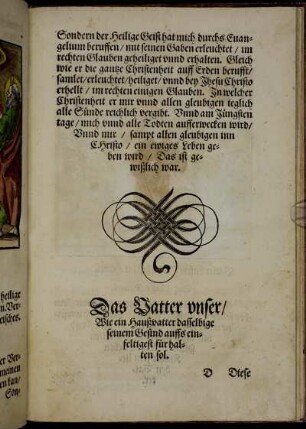 Sondern der Heilige Geist hat mich durchs Euan-
gelium beruffen / mit seinen Gaben erleuchtet / im
rechten Glauben geheiliget vnnd erhalten. Gleich
wie er die gantze Christenheit auff Erden berufft /
samlet / erleuchtet / heiliget / vnnd bey Jhesu Christo
erhellt / im rechten einigen Glauben. In welcher
Christenheit er mir vnnd allen gleubigen teglich
alle Sünde reichlich vergibt. Vnnd am Jüngsten
tage / mich vnnd alle Todten aufferwecken wird /
Vnnd mir / sampt allen gleubigen inn
CHristo / ein ewiges Leben ge-
ben wird / Das ist ge-
wißlich war.
Das Vatter vnser /
Wie ein Haußvatter dasselbige
seinem Gesind auffs ein-
feltigest für hal-
ten sol.
D Diese
heilige
n / Ver-
leisches.
er Ver-
meinen
en kan /
Son-